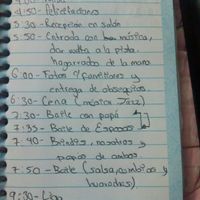 4:50 - Felicitaciones
5:30 - Recepción en Salón
5:50 - Entrada con música,
dar vuelta a la pista
agarrados de la mano
6:00 - Fotos 9 familiares y
entrega de obsequios
6:30 - Cena (música Jazz)
7:30 - Baile con papá
7:35 - Baile de Esposos
7:40 - Brindis, nosotros y
papás de ambos
7:50 - Baile (salsa, cumbias y
huarachas)
9:30 - Liga